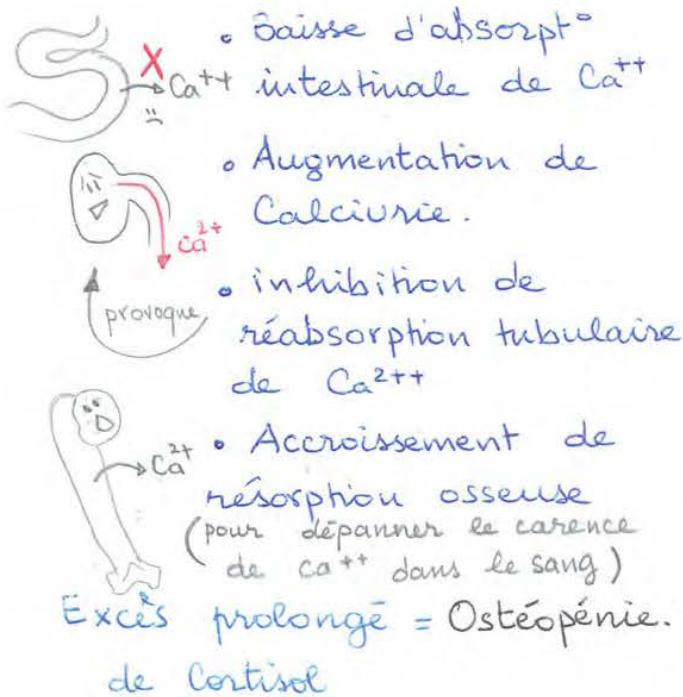 • Baisse d'absorpt°
Ca⁺⁺ intestinale de Ca⁺⁺
• Augmentation de
Calciurie.
Ca²⁺
• inhibition de
provoque réabsorption tubulaire
de Ca²⁺⁺
Ca²⁺ • Accroissement de
résorption osseuse
(pour dépanner le carence
de Ca⁺⁺ dans le sang)
Excès prolongé = Ostéopénie.
de Cortisol